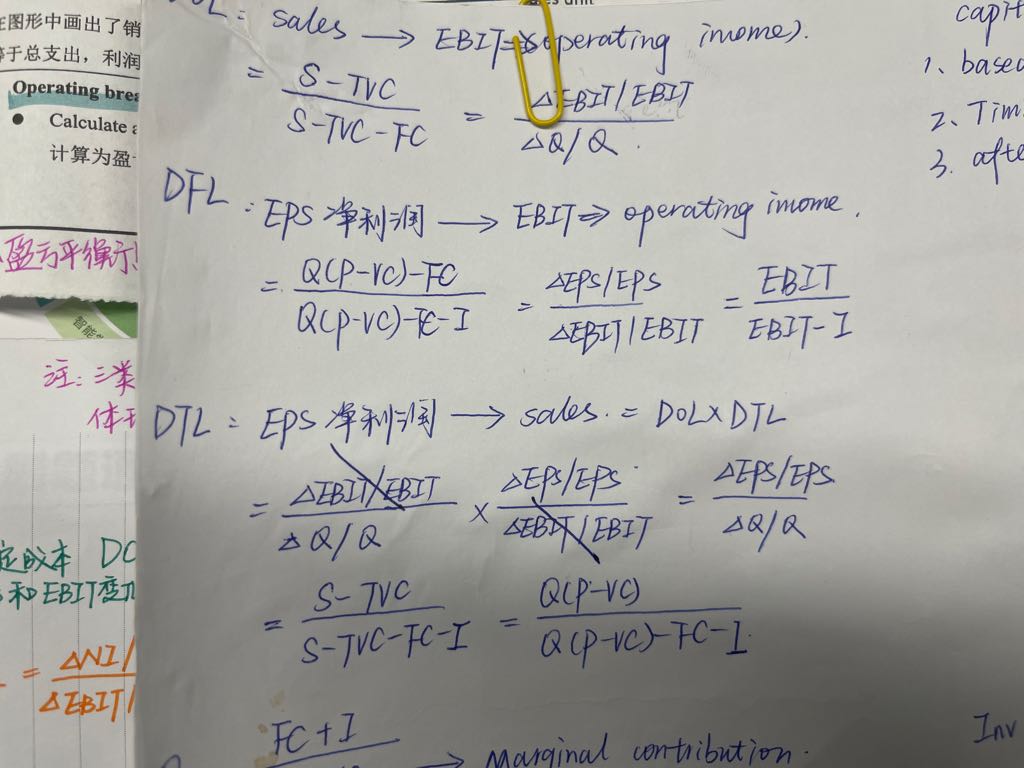 在图形中画出了销
等于总支出，利润
Operating brea
● Calculate a
计算为盈
盈亏平衡
智能
注：三类
体现
定成本 DO
和EBIT变
= ΔNI/
ΔEBIT/
DOL: sales → EBIT ⇒ operating inome).
= (S-TVC)/(S-TVC-FC) = (ΔEBIT/EBIT)/(ΔQ/Q).
DFL: EPS 净利润 → EBIT ⇒ operating inome.
= (Q(P-VC)-FC)/(Q(P-VC)-FC-I) = (ΔEPS/EPS)/(ΔEBIT/EBIT) = EBIT/(EBIT-I)
DTL: EPS 净利润 → sales. = DOL×DTL
= (ΔEBIT/EBIT)/(ΔQ/Q) × (ΔEPS/EPS)/(ΔEBIT/EBIT) = (ΔEPS/EPS)/(ΔQ/Q)
= (S-TVC)/(S-TVC-FC-I) = Q(P-VC)/(Q(P-VC)-FC-I)
FC+I → Marginal contribution.
capit
1、based
2、Tim
3. afte
Inv